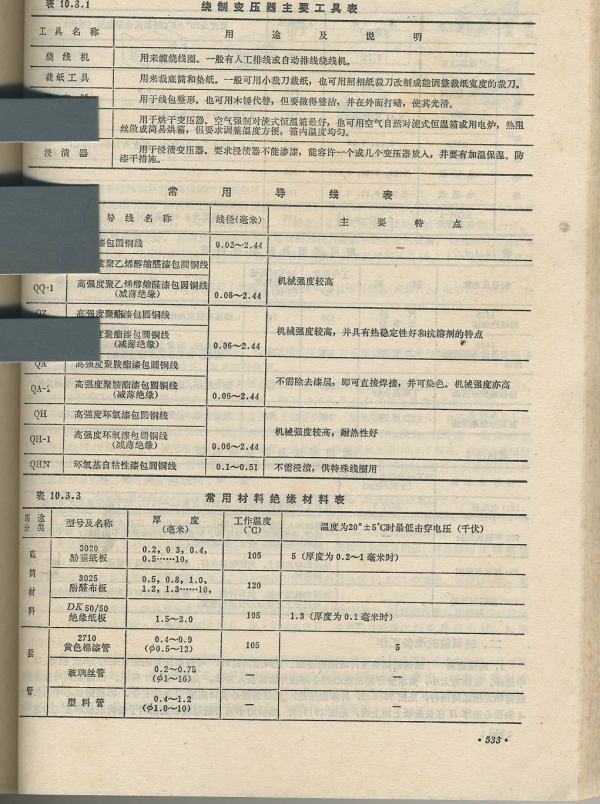 表 10.3.1 绕制变压器主要工具表
工具名称 用途及说明
绕线机 用来缠绕线圈。一般有人工排线或自动排线绕线机。
裁纸工具 用来裁底筒和垫纸。一般可用小裁刀裁纸，也可用照相纸裁刀改制成能调整裁纸宽度的裁刀。
用于线包整形。也可用木锤代替，但要做得整洁，并在外面打蜡，使其光滑。
用于烘干变压器。空气强制对流式恒温箱最好，也可用空气自然对流式恒温箱或用电炉，热阻
丝做成简易烘箱，但要求调整温度方便，箱内温度均匀。
浸渍器 用于浸渍变压器。要求浸渍器不能渗漆，能容许一个或几个变压器放入，并要有加温保温、防
溱干措施。
常用导线表
导线名称 线径(毫米) 主要特点
漆包圆铜线 0.02～2.44 —
高强度聚乙烯醇缩醛漆包圆铜线
QQ-1 高强度聚乙烯醇缩醛漆包圆铜线
(减薄绝缘) 0.06～2.44 机械强度较高
QZ 高强度聚酯漆包圆铜线
聚酯漆包圆铜线
(减薄绝缘) 0.06～2.44 机械强度较高，并具有热稳定性好和抗溶剂的特点
QA 高强度聚胺酯漆包圆铜线
QA-1 高强度聚胺酯漆包圆铜线
(减薄绝缘) 0.06～2.44 不需除去漆层，即可直接焊接，并可染色。机械强度亦高
QH 高强度环氧漆包圆铜线
QH-1 高强度环氧漆包圆铜线
(减薄绝缘) 0.06～2.44 机械强度较高，耐热性好
QHN 环氧基自粘性漆包圆铜线 0.1～0.51 不需浸渍，供特殊线圈用
表 10.3.3 常用材料绝缘材料表
用途分类 型号及名称 厚度(毫米) 工作温度(℃) 温度为20°±5℃时最低击穿电压（千伏）
底筒材料 3020
酚醛纸板 0.2，0 3，0.4，
0.5……10， 105 5（厚度为0.2～1毫米时）
3025
酚醛布板 0.5，0.8，1.0，
1.2，1.3……10， 120
DK50/50
绝缘纸板 1.5～3.0 105 1.3（厚度为0.1毫米时）
套管 2710
黄色棉漆管 0.4～0.9
(φ0.5～12) 105 5
玻璃丝管 0.2～0.75
(φ1～16) — —
塑料管 0.4～1.2
(φ1.0～10) — —
·533·